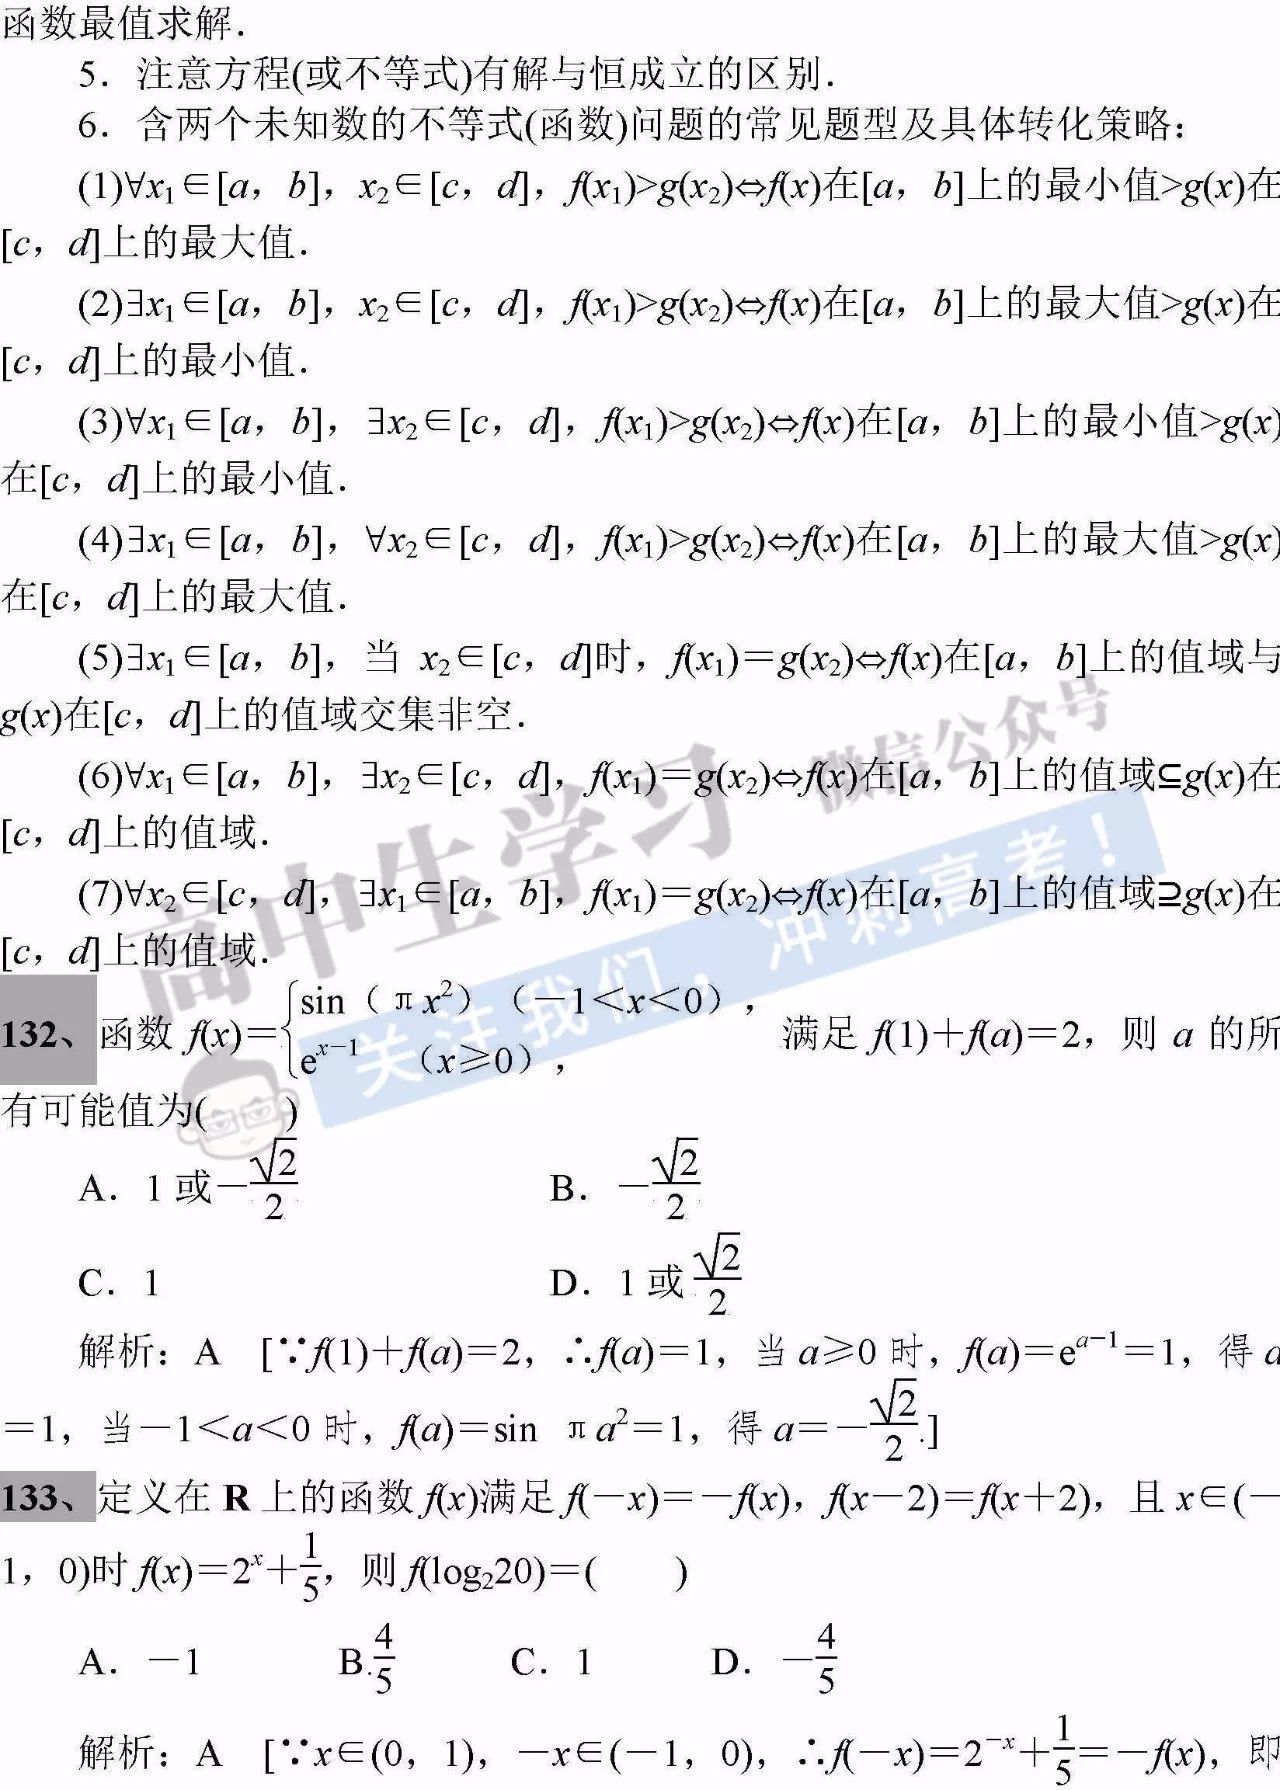 函数最值求解．
5．注意方程(或不等式)有解与恒成立的区别．
6．含两个未知数的不等式(函数)问题的常见题型及具体转化策略：
(1)∀x₁∈[a，b]，x₂∈[c，d]，f(x₁)>g(x₂)⇔f(x)在[a，b]上的最小值>g(x)在
[c，d]上的最大值．
(2)∃x₁∈[a，b]，x₂∈[c，d]，f(x₁)>g(x₂)⇔f(x)在[a，b]上的最大值>g(x)在
[c，d]上的最小值．
(3)∀x₁∈[a，b]，∃x₂∈[c，d]，f(x₁)>g(x₂)⇔f(x)在[a，b]上的最小值>g(x)
在[c，d]上的最小值．
(4)∃x₁∈[a，b]，∀x₂∈[c，d]，f(x₁)>g(x₂)⇔f(x)在[a，b]上的最大值>g(x)
在[c，d]上的最大值．
(5)∃x₁∈[a，b]，当 x₂∈[c，d]时，f(x₁)＝g(x₂)⇔f(x)在[a，b]上的值域与
g(x)在[c，d]上的值域交集非空．
(6)∀x₁∈[a，b]，∃x₂∈[c，d]，f(x₁)＝g(x₂)⇔f(x)在[a，b]上的值域⊆g(x)在
[c，d]上的值域．
(7)∀x₂∈[c，d]，∃x₁∈[a，b]，f(x₁)＝g(x₂)⇔f(x)在[a，b]上的值域⊇g(x)在
[c，d]上的值域．
高中生学习 微信公众号
关注我们，冲刺高考！
132、函数 f(x)＝{sin（πx²）（－1＜x＜0），e^(x－1)（x≥0）， 满足 f(1)＋f(a)＝2，则 a 的所
有可能值为(　　)
A．1 或－√2/2　　B．－√2/2
C．1　　D．1 或√2/2
解析：A　[∵f(1)＋f(a)＝2，∴f(a)＝1，当 a≥0 时，f(a)＝e^(a－1)＝1，得 a
＝1，当－1＜a＜0 时，f(a)＝sin πa²＝1，得 a＝－√2/2.]
133、定义在 R 上的函数 f(x)满足 f(－x)＝－f(x)，f(x－2)＝f(x＋2)，且 x∈(－
1，0)时 f(x)＝2^x＋1/5，则 f(log₂20)＝(　　)
A．－1　　B.4/5　　C．1　　D．－4/5
解析：A　[∵x∈(0，1)，－x∈(－1，0)，∴f(－x)＝2^(－x)＋1/5＝－f(x)，即